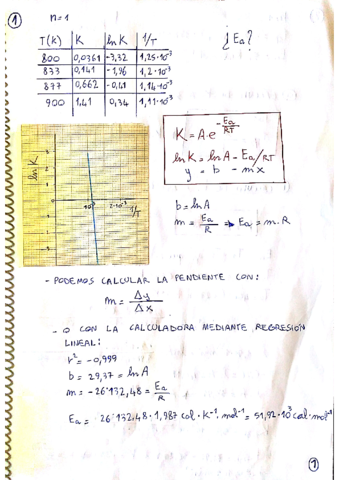 1
n=1
¿Ea?
T(K) K lnK 1/T
800 0,0361 -3,32 1,25·10⁻³
833 0,141 -1,96 1,2·10⁻³
877 0,662 -0,41 1,14·10⁻³
900 1,41 0,34 1,11·10⁻³
K = A·e^(-Ea/RT)
lnK = lnA - Ea/RT
y = b - mx
lnK
10⁻³ 2·10⁻³ 1/T
b = lnA
m = Ea/R ⇒ Ea = m·R
- PODEMOS CALCULAR LA PENDIENTE CON:
m = Δy/Δx
- O CON LA CALCULADORA MEDIANTE REGRESION
LINEAL:
r² = -0,999
b = 29,37 = lnA
m = -26'132,48 = Ea/R
Ea = 26'132,48 · 1,987 cal·K⁻¹·mol⁻¹ = 51,92·10³ cal·mol⁻¹
1